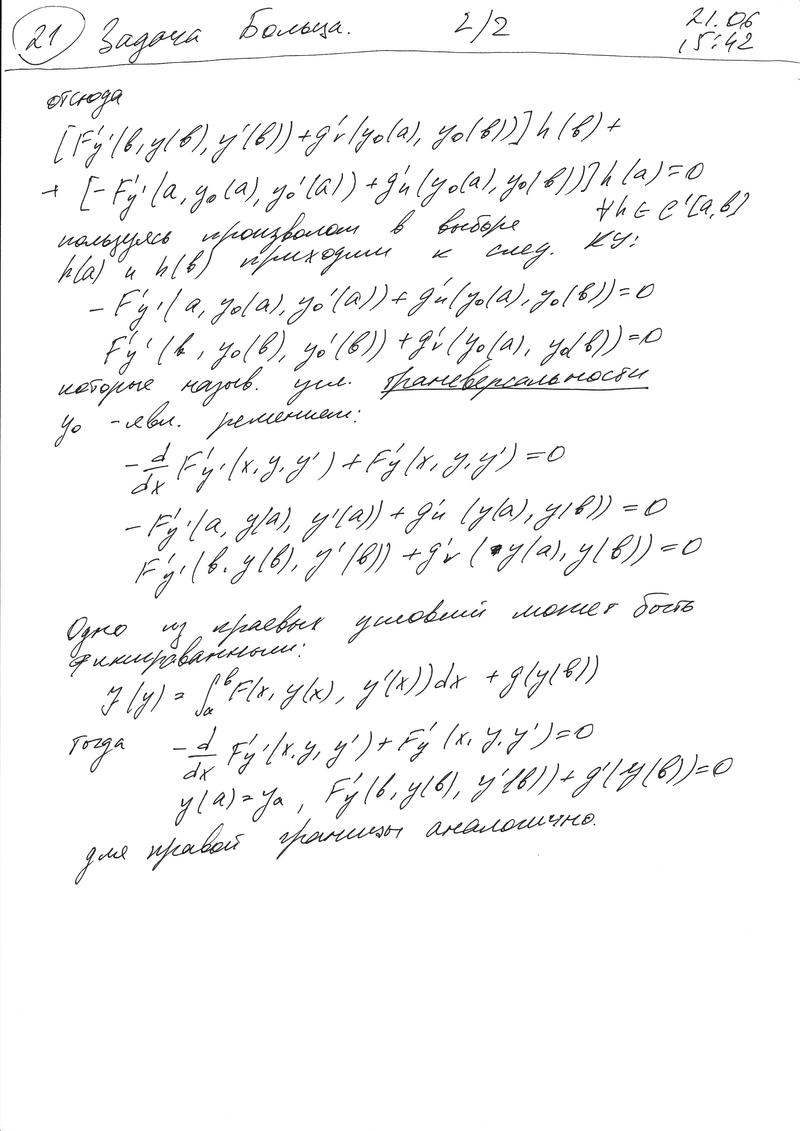 21 Задача Больца. 2/2 21.06 15:42
отсюда
[F'y'(b, y(b), y'(b)) + g'v(y₀(a), y₀(b))] h(b) +
+ [-F'y'(a, y₀(a), y₀'(a)) + g'u(y₀(a), y₀(b))] h(a) = 0
∀h ∈ C'[a,b]
пользуясь произволом в выборе
h(a) и h(b) приходим к след. КУ:
- F'y'(a, y₀(a), y₀'(a)) + g'u(y₀(a), y₀(b)) = 0
F'y'(b, y₀(b), y₀'(b)) + g'v(y₀(a), y₀(b)) = 0
которые назыв. усл. трансверсальности
y₀ - явл. решением:
- d/dx F'y'(x, y, y') + F'y(x, y, y') = 0
- F'y'(a, y(a), y'(a)) + g'u(y(a), y(b)) = 0
F'y'(b, y(b), y'(b)) + g'v(y(a), y(b)) = 0
Одно из краевых условий может быть
фиксированным:
J(y) = ∫ₐᵇ F(x, y(x), y'(x))dx + g(y(b))
тогда - d/dx F'y'(x, y, y') + F'y(x, y, y') = 0
y(a) = yₐ, F'y'(b, y(b), y'(b)) + g'(y(b)) = 0
для правой границы аналогично.